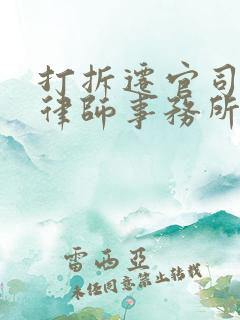 打拆遷官司
律師事務所
雷西亞
未經同意禁止轉載